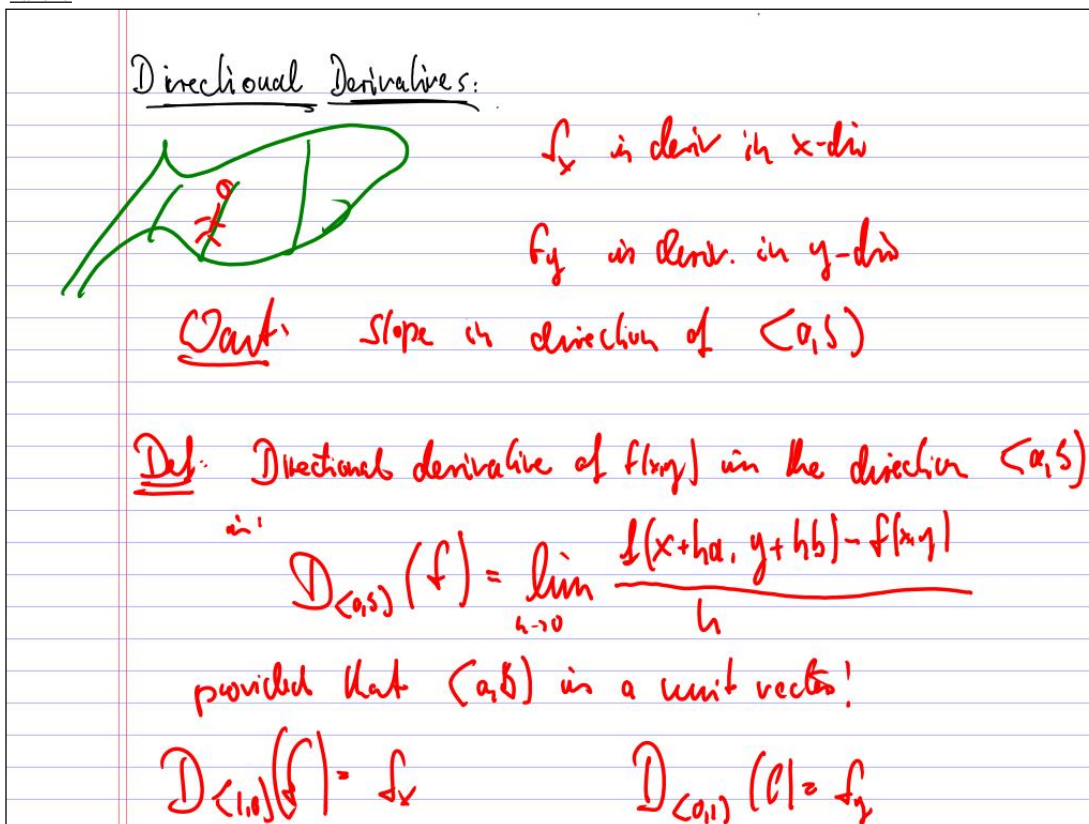 Directional Derivatives:
f_x is deriv in x-dir
f_y is deriv. in y-dir
Want: Slope in direction of <a,b>
Def: Directional derivative of f(x,y) in the direction <a,b>
is:
D_<a,b> (f) = lim_{h→0} (f(x+ha, y+hb) - f(x,y)) / h
provided that <a,b> is a unit vector!
D_<1,0> (f) = f_x D_<0,1> (f) = f_y